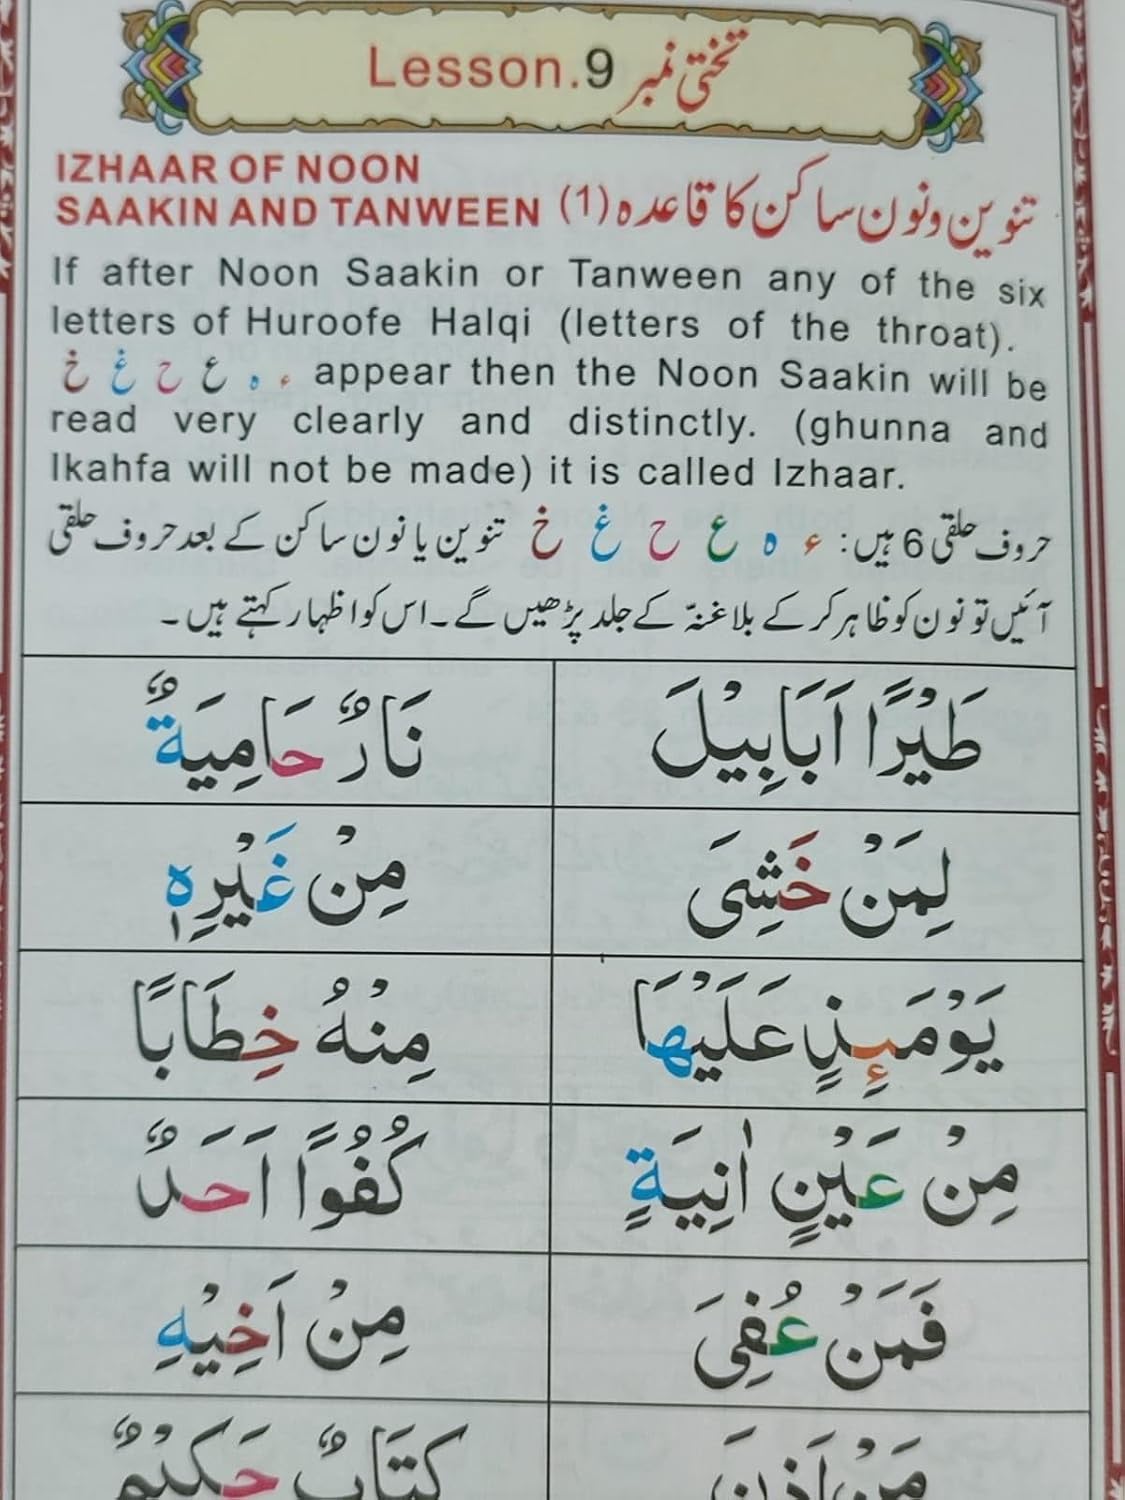 Lesson.9 تختی نمبر
IZHAAR OF NOON
SAAKIN AND TANWEEN (1) تنوین ونون ساکن کا قاعدہ
If after Noon Saakin or Tanween any of the six
letters of Huroofe Halqi (letters of the throat).
ء ہ ع ح غ خ appear then the Noon Saakin will be
read very clearly and distinctly. (ghunna and
Ikahfa will not be made) it is called Izhaar.
حروف حلقی 6 ہیں: ء ہ ع ح غ خ تنوین یا نون ساکن کے بعد حروف حلقی
آئیں تو نون کو ظاہر کر کے بلا غنّہ کے جلد پڑھیں گے۔ اس کو اظہار کہتے ہیں۔
طَيْرًا اَبَابِيْلَ نَارٌ حَامِيَةٌ
لِمَنْ خَشِىَ مِنْ غَيْرِهٖ
يَوْمَئِذٍ عَلَيْهَا مِنْهُ خِطَابًا
مِنْ عَيْنٍ اٰنِيَةٍ كُفُوًا اَحَدٌ
فَمَنْ عُفِىَ مِنْ اَخِيْهِ
مَنْ اَذِنَ كِتَابٌ حَكِيْمٌ